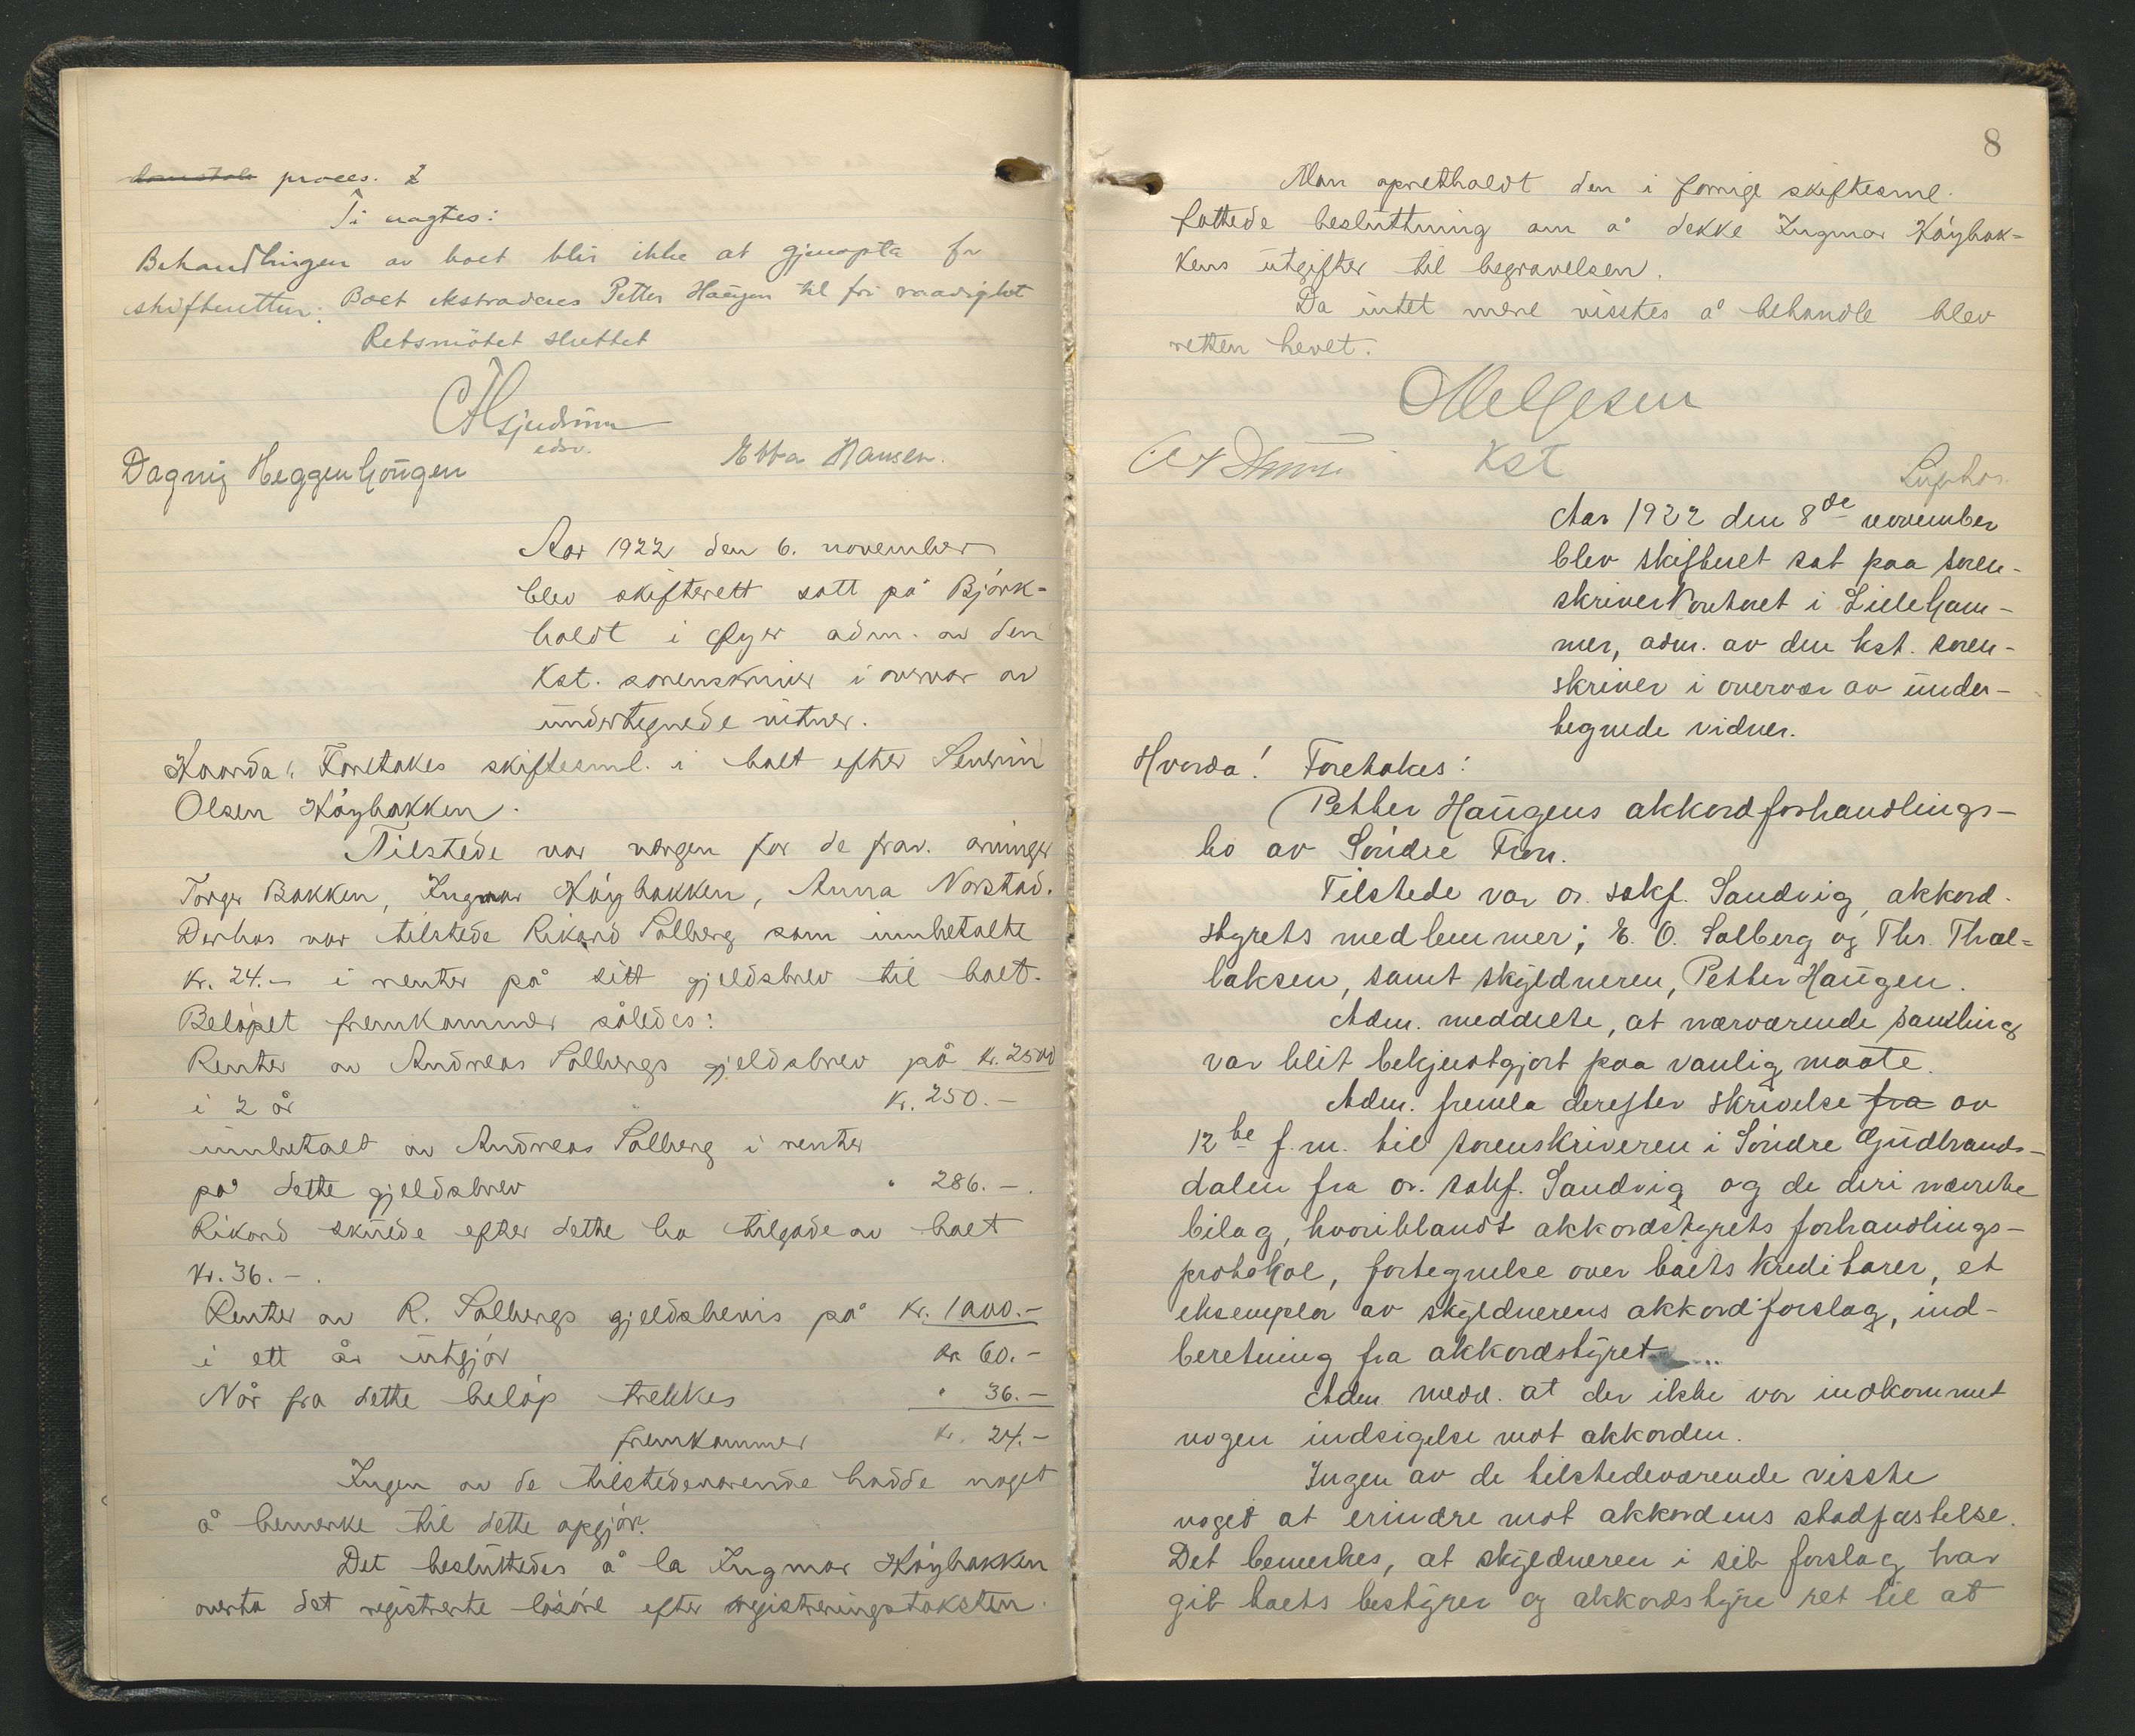 proces.
Ti nagtes:
Behandlingen av boet blir ikke at gjenopta for
skifteretten. Boet ekstraderes Petter Haugen til fri raadighet
Retsmötet sluttet
edsv.
Dagny Heggenhougen Ebba Hansen.
Aar 1922 den 6. november
blev skifterett satt på Björk-
holdt i Øyer adm. av den
Kst. sorenskriver i overvær av
undertegnede vitner.
Hvorda: Foretokes skiftesml. i boet efter Severin
Olsen Höybakken.
Tilstede var vergen for de frav. arvinger
Torger Bakken, Ingmar Höybakken, Anna Norstad.
Derhos var tilstede Rikard Solberg som innbetalte
kr. 24.- i renter på sitt gjeldsbrev til boet.
Belöpet fremkommer således:
Renter av Andreas Solbergs gjeldsbrev på kr. 2500
i 2 år kr. 250.-
innbetalt av Andreas Solberg i renter
på dette gjeldsbrev " 286.-.
Rikard skulde efter dette ha tilgode av boet
kr. 36.-.
Renter av R. Solbergs gjeldsbevis på kr. 1000.-
i ett år utgjör kr 60.-
Når fra dette belöp trekkes " 36.-
fremkommer kr. 24.-
Ingen av de tilstedeværende hadde noget
å bemerke til dette opgjör.
Det besluttedes å la Ingmar Höybakken
overta det registrerte lösöre efter registreringstaksten.
8
Man opretholdt den i forrige skiftesml.
fattede besluttning om å dekke Ingmar Höybak-
kens utgifter til begravelsen.
Da intet mere visstes å behandle blev
retten hevet.
Kst
Aar 1922 den 8de november
blev skifteret sat paa soren-
skriverkontoret i Lilleham-
mer, adm. av den kst. soren-
skriver i overvær av under-
tegnede vidner.
Hvorda! Foretokes:
Petter Haugens akkordforhandlings-
bo av Söndre Fron.
Tilstede var o.r. sakf. Sandvig, akkord-
styrets medlemmer; E. O. Solberg og Ths. Thol-
laksen, samt skyldneren, Petter Haugen.
Adm. meddelte, at nærværende samling
var blit bekjendtgjort paa vanlig maate.
Adm. fremla derefter skrivelse fra av
12te f.m. til sorenskriveren i Söndre Gudbrands-
dalen fra o.r. sakf. Sandvig og de deri nævnte
bilag, hvoriblandt akkordstyrets forhandlings-
protokol, fortegnelse over boets kreditorer, et
eksemplar av skyldnerens akkordforslag, ind-
beretning fra akkordstyret
Adm. medd. at der ikke var indkommet
nogen indsigelse mot akkorden.
Ingen av de tilstedeværende visste
noget at erindre mot akkordens stadfæstelse.
Det bemerkes, at skyldneren i sit forslag har
git boets bestyrer og akkordstyre ret til at